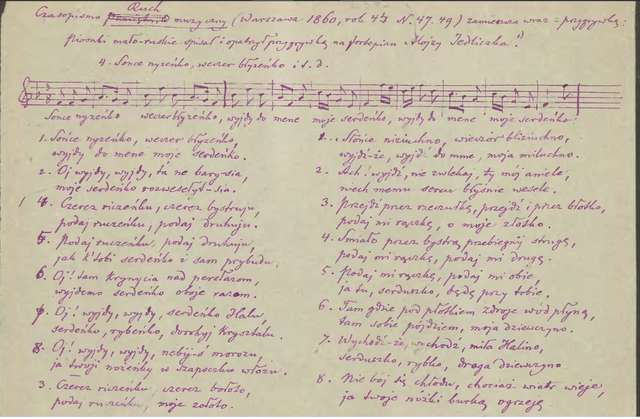 Ruch
Czasopismo muzyczny (Warszawa 1860, rok 4ty N. 47. 49) zamieszcza wraz z przygrywką:
Piosnki mało-ruskie spisał i opatrzył przygrywką na fortepian Alojzy Jedliczka.
4. Sonce nyzeńko, weczer błyzeńko i t. d.
Sonce nyzeńko weczer błyzeńko, wyjdy do mene moje serdeńko, wyjdy do mene moje serdeńko.
1. Sońce nyzeńko, weczer błyzeńko,
wyjdy do mene moje serdeńko.
2. Oj wyjdy, wyjdy, ta ne barysia,
moje serdeńko rozweselyt-sia.
4. Czerez riczeńku, czerez bystruju,
podaj ruczeńku, podaj druhuju.
5. Podaj ruczeńku, podaj druhuju,
jak k'tobi serdeńko i sam prybudu.
6. Oj! tam krynycia nad perełazom,
wyjdemo serdeńko oboje razom.
7. Oj! wyjdy, wyjdy, serdeńko Halu,
serdeńko, rybeńko, dorohyj kryształu.
8. Oj! wyjdy, wyjdy, ne bij-ś morozu,
ja twoji nożeńky w szapoczku włożu.
3. Czerez riczeńku, czerez bołoto,
podaj ruczeńku, moje zołoto.
1. Słońce niziuchno, wieczór bliziuchno,
wyjdź-że, wyjdź do mnie, moja miluchno.
2. Ach! wyjdź, nie zwlekaj, ty mój aniele,
niech memu sercu błyśnie wesele.
3. Przejdź przez rzeczułkę, przejdź i przez błotko,
podaj mi rączkę, o moje złotko.
4. Śmiało przez bystrą przebiegnij strugę,
podaj mi rączkę, podaj mi drugą.
5. Podaj mi rączkę, podaj mi obie,
ja tu, serduszko, będę przy tobie.
6. Tam gdzie pod płotkiem zdroje wód płyną,
tam sobie pójdziem, moja dziewczyno.
7. Wychodź-że, wychodź, miła Halino,
serduszko, rybko, droga dziewczyno
8. Nie bój się chłodu, chociaż wiatr wieje,
ja twoje nóżki burką ogrzeję